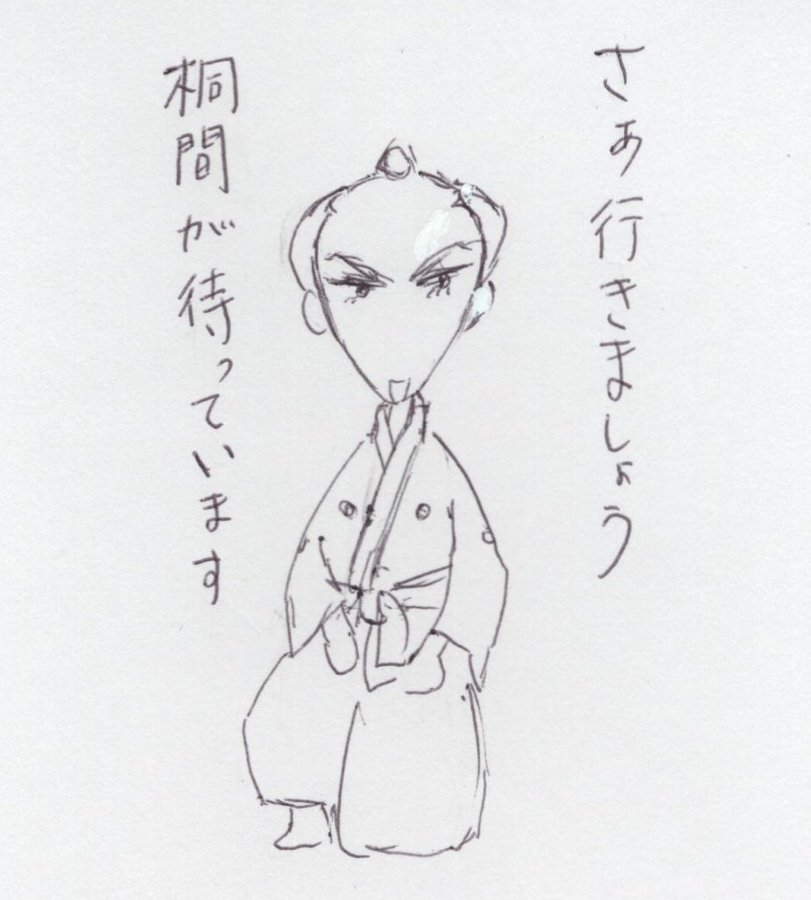 さぁ行きましょう
桐間が待っています